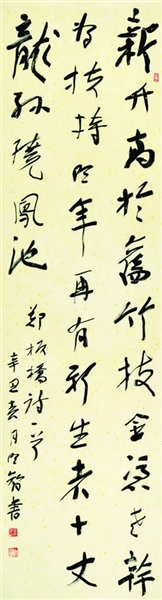 新竹高於舊竹枝全凭老幹
为扶持明年再有新生者十丈
龍孙繞鳳池
鄭板橋詩一首
辛丑夏月明智書